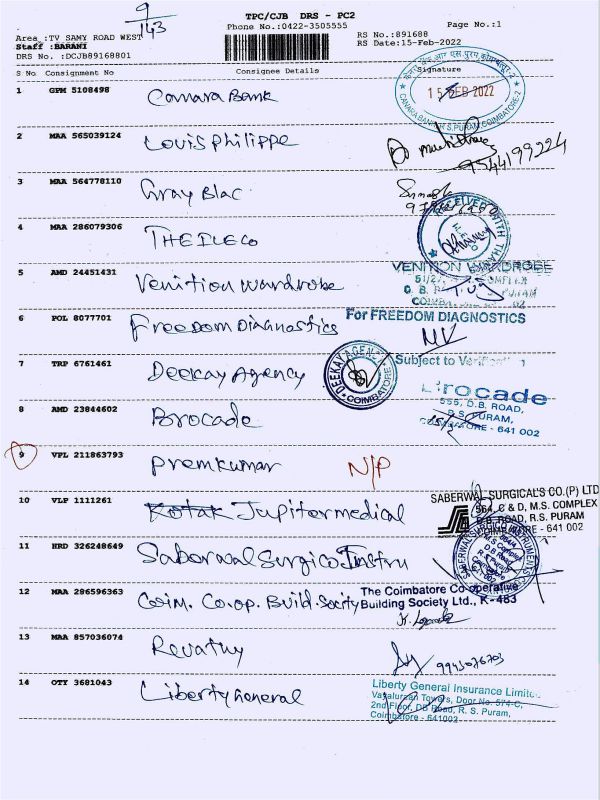 9
143
TPC/CJB DRS - PC2
Phone No.:0422-3505555
Page No.:1
Area :TV SAMY ROAD WEST
Staff :BARANI
DRS No. :DCJB89168801
RS No.:891688
RS Date:15-Feb-2022
S No Consignment No Consignee Details Signature
1 GPM 5108498 Canara Bank
15 FEB 2022
2 MAA 565039124 Louis Philippe
9544199224
3 MAA 564778110 Gray Blac
4 MAA 286079306 THEILECO
RECEIVED WITH
5 AMD 24451431 Venition Wardrobe
VENITION WARDROBE
6 POL 8077701 Freedom Diagnostics
For FREEDOM DIAGNOSTICS
NV
7 TRP 6761461 Deekay Agency
DEEKAY AGEN COIMBATORE
Subject to
8 AMD 23844602 Brocade
rocade
555, D.B. ROAD,
R.S. PURAM,
COIMBATORE - 641 002
9 VPL 211863793 Premkumar N/P
10 VLP 1111261 Kotak Jupiter medical
SABERWAL SURGICAL'S CO.(P) LTD
564, C & D, M.S. COMPLEX
D.B. ROAD, R.S. PURAM
COIMBATORE - 641 002
11 HRD 326248649 Saberwal Surgico Instru
12 MAA 286596363 Coim. Co.op. Build. Socity
The Coimbatore Co-operative
Building Society Ltd., K-483
13 MAA 857036074 Revathy
14 OTY 3681043 Liberty General
Liberty General Insurance Limited
Vayaluraan Towers, Door No. 574-C,
2nd Floor, DB Road, R. S. Puram,
Coimbatore - 641002